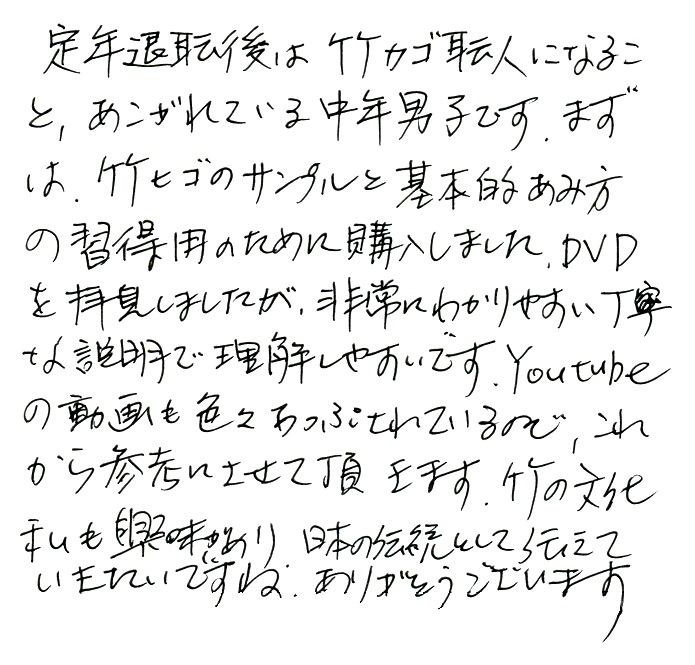 定年退職後は竹カゴ職人になるこ
と、あこがれている中年男子です。まず
は、竹ヒゴのサンプルと基本的あみ方
の習得用のために購入しました。DVD
を拝見しましたが、非常にわかりやすい丁寧
な説明で理解しやすいです。Youtube
の動画も色々あっぷされているので、これ
から参考にさせて頂きます。竹の文化
私も興味があり、日本の伝統として伝えて
いきたいですね。ありがとうございます